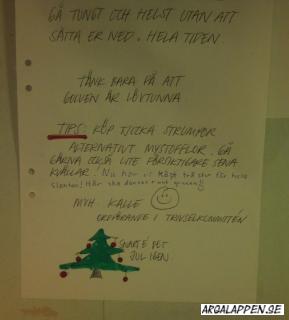 GÅ TUNGT OCH HELST UTAN ATT
SÄTTA ER NED. HELA TIDEN
TÄNK BARA PÅ ATT
GOLVEN ÄR LÖVTUNNA.
TIPS: KÖP TJOCKA STRUMPOR
ALTERNATIVT MYSTOFFLOR. GÅ
GÄRNA OCKSÅ LITE FÖRSIKTIGARE SENA
KVÄLLAR. Nu har vi köpt två skor för hela
slanten! Här ska dansas runt granen!!
MVH. KALLE
ORDFÖRANDE I TRIVSELKOMMITÉN
SNART É DET
JUL IGEN
ARGALAPPEN.SE